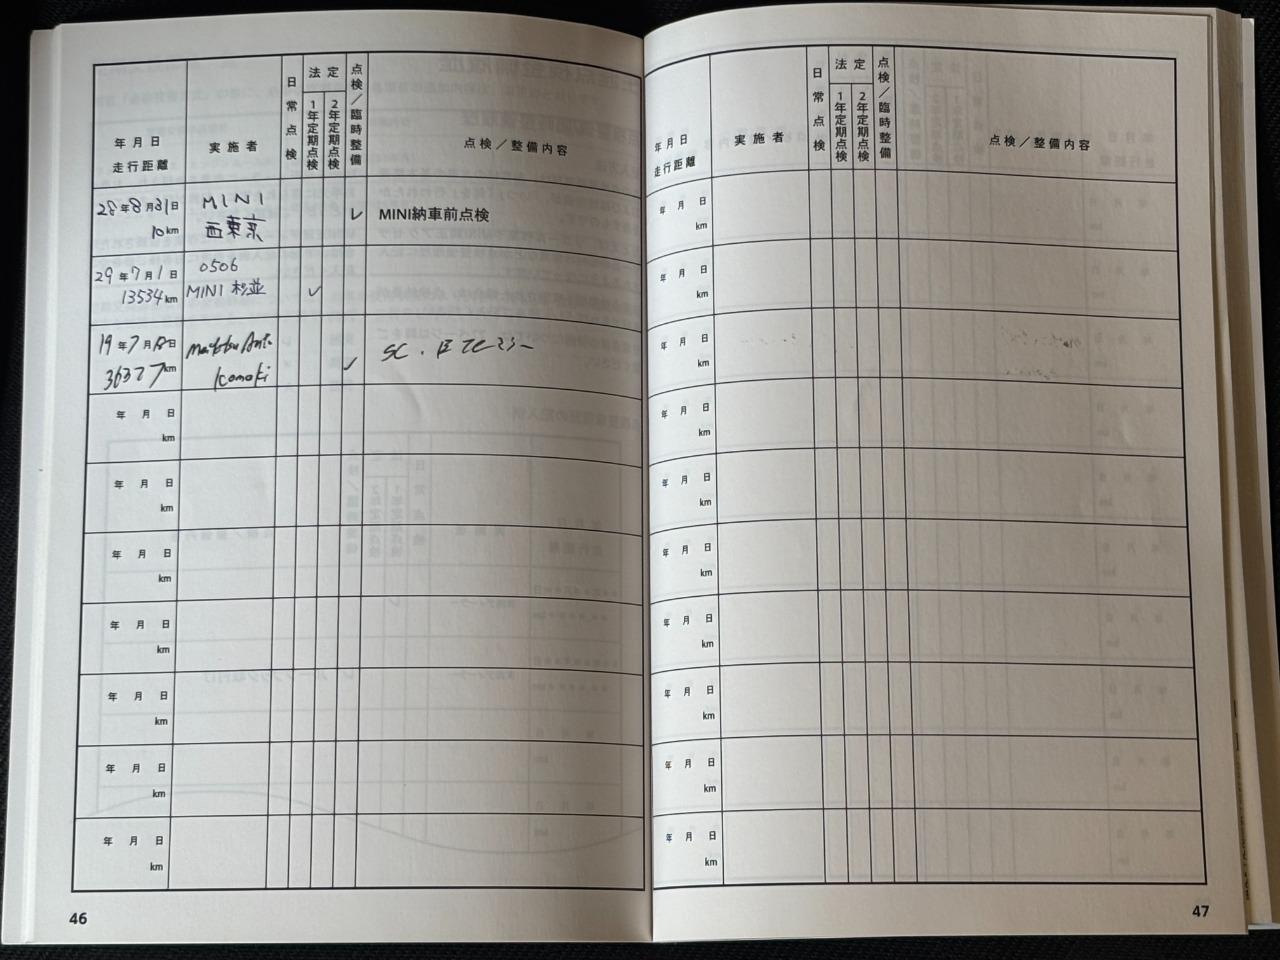 年月日
走行距離
実施者
日常点検
法定
1年定期点検
2年定期点検
点検／臨時整備
点検／整備内容
28年8月31日
10km
MINI
西東京
MINI納車前点検
29年7月1日
13534km
0506
MINI 杉並
19年7月 日
36377km
Komaki
SC.
年 月 日
km
年 月 日
km
年 月 日
km
年 月 日
km
年 月 日
km
年 月 日
km
年 月 日
km
46
年月日
走行距離
実施者
日常点検
法定
1年定期点検
2年定期点検
点検／臨時整備
点検／整備内容
年 月 日
km
年 月 日
km
年 月 日
km
年 月 日
km
年 月 日
km
年 月 日
km
年 月 日
km
年 月 日
km
年 月 日
km
年 月 日
km
47